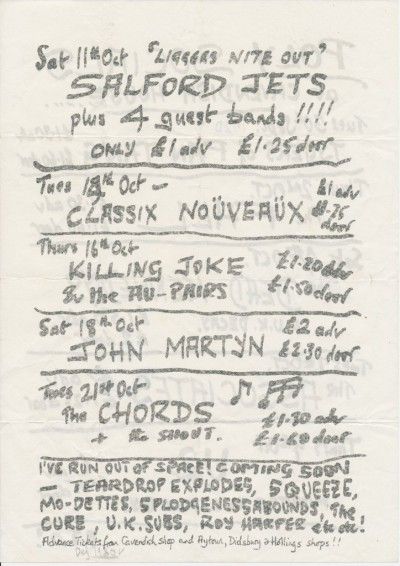 Sat 11th Oct "LIGGERS NITE OUT"
SALFORD JETS
plus 4 guest bands !!!!
ONLY £1 adv £1.25 door
Tues Oct – £1 adv
CLASSIX NOÜVEAÜX £1.25 door
Thurs 16th Oct
KILLING JOKE £1.20 adv
& the AU-PAIRS £1.50 door
Sat 18th Oct £2 adv
JOHN MARTYN £2.30 door
Tues 21st Oct
The CHORDS £1.30 adv
+ the SHOUT. £1.60 door
I'VE RUN OUT OF SPACE! COMING SOON
— TEARDROP EXPLODES, SQUEEZE,
MO-DETTES, SPLODGENESSABOUNDS, The
CURE, U.K. SUBS, ROY HARPER etc etc!
Advance Tickets from Cavendish shop and Aytoun, Didsbury & Hollings shops!!